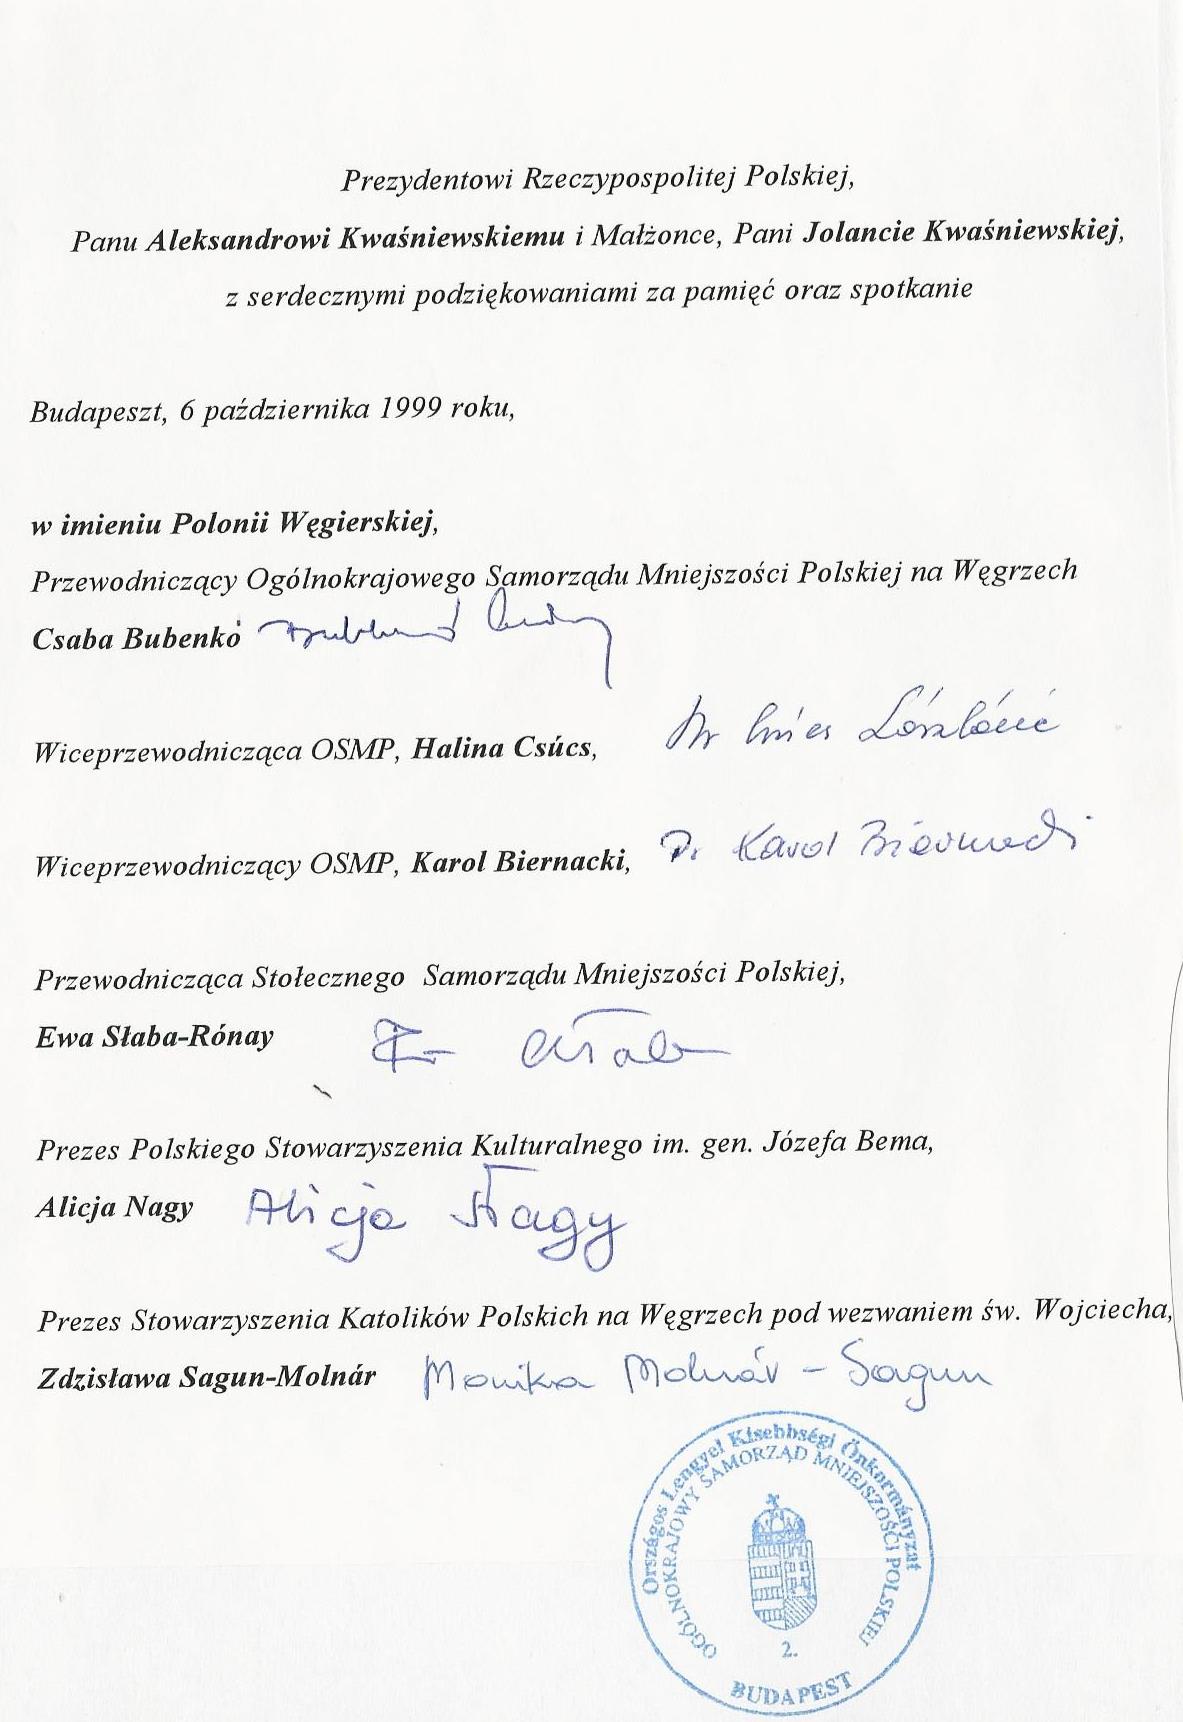 Prezydentowi Rzeczypospolitej Polskiej,
Panu Aleksandrowi Kwaśniewskiemu i Małżonce, Pani Jolancie Kwaśniewskiej,
z serdecznymi podziękowaniami za pamięć oraz spotkanie
Budapeszt, 6 października 1999 roku,
w imieniu Polonii Węgierskiej,
Przewodniczący Ogólnokrajowego Samorządu Mniejszości Polskiej na Węgrzech
Csaba Bubenkó
Wiceprzewodnicząca OSMP, Halina Csúcs, Lászlóné
Wiceprzewodniczący OSMP, Karol Biernacki, Dr Karol Biernacki
Przewodnicząca Stołecznego Samorządu Mniejszości Polskiej,
Ewa Słaba-Rónay
Prezes Polskiego Stowarzyszenia Kulturalnego im. gen. Józefa Bema,
Alicja Nagy Alicja Nagy
Prezes Stowarzyszenia Katolików Polskich na Węgrzech pod wezwaniem św. Wojciecha,
Zdzisława Sagun-Molnár Monika Molnár - Sagun
Országos Lengyel Kisebbségi Önkormányzat
OGÓLNOKRAJOWY SAMORZĄD MNIEJSZOŚCI POLSKIEJ
2.
BUDAPEST